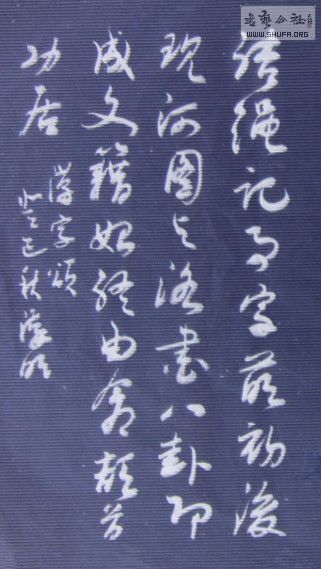 書藝公社
WWW.SHUFA.ORG
結繩記事字萌初後
現河圖与洛書八卦即
成文籍始終由倉頡首
功居
漢字頌
癸巳秋漢明